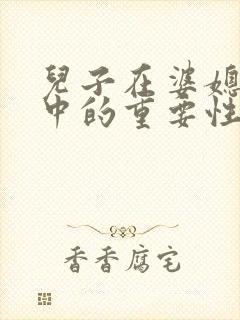 兒子在婆媳
中的重要性
香香腐宅